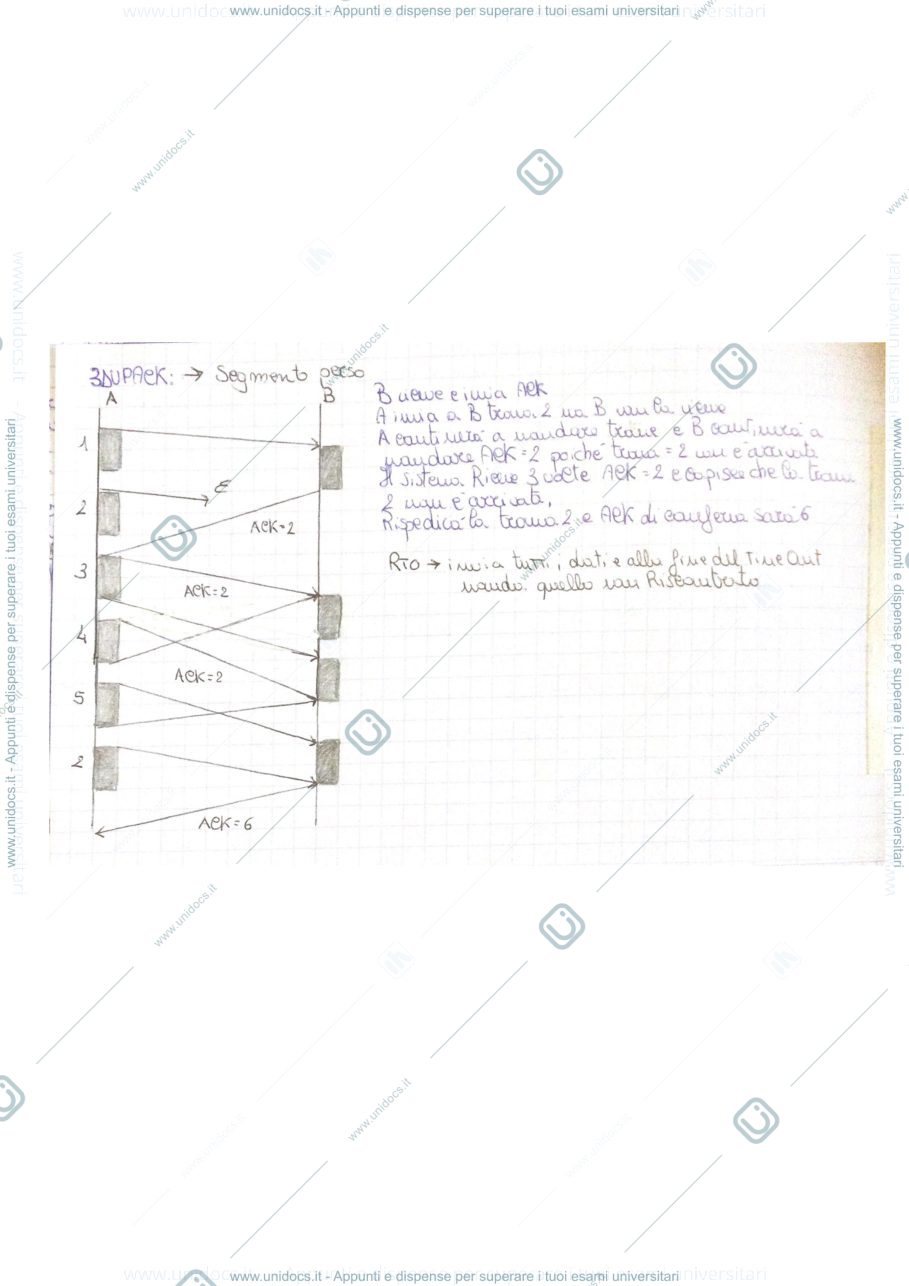 www.unidocs.it - Appunti e dispense per superare i tuoi esami universitari
3DUPACK: → Segmento perso
A
B
1
2
3
4
5
2
E
ACK=2
ACK=2
ACK=2
ACK=6
B riceve e invia ACK
A invia a B trama 2 ma B non la riceve
A continuerà a mandare trame e B continuerà a
mandare ACK=2 poiché trama=2 non è arrivata
Il sistema Riceve 3 volte ACK=2 e capisce che la trama
2 non è arrivata,
Rispedirà la trama 2 e ACK di conferma sarà 6
RTO → invia tutti i dati e alla fine del Time Out
manda quello non Riscontrato
www.unidocs.it - Appunti e dispense per superare i tuoi esami universitari
www.unidocs.it - Appunti e dispense per superare i tuoi esami universitari
www.unidocs.it
www.unidocs.it
www.unidocs.it
www.unidocs.it
www.unidocs.it
www.unidocs.it
www.unidocs.it - Appunti e dispense per superare i tuoi esami universitari